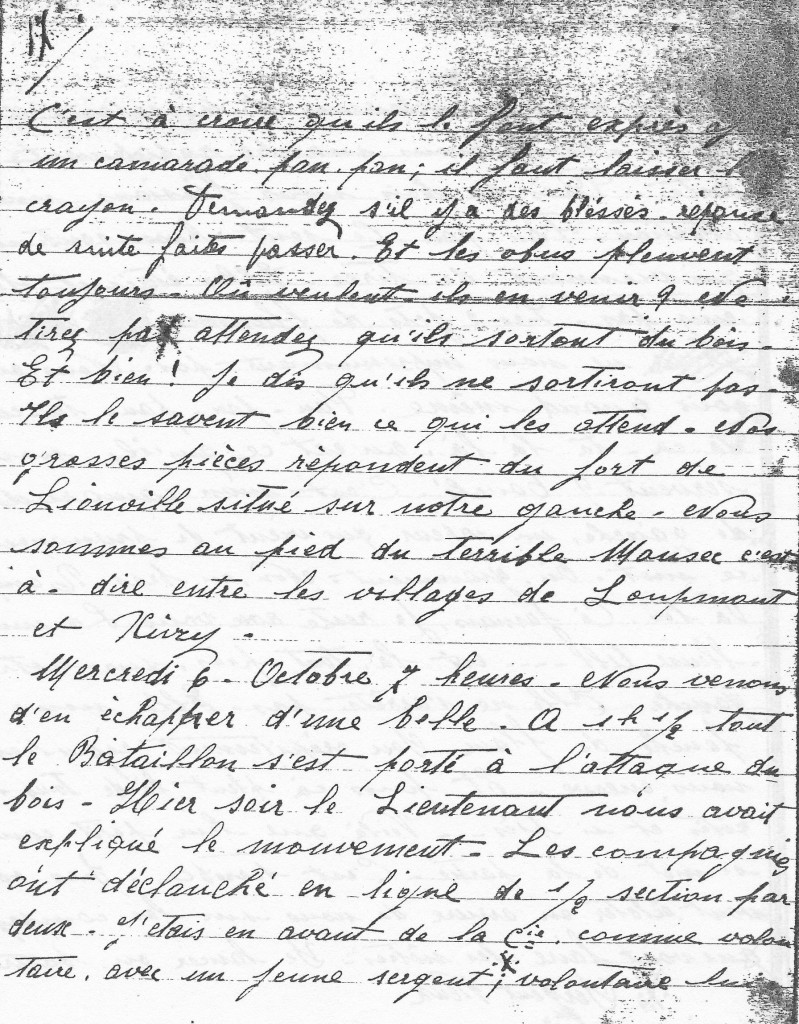 17
C'est à croire qu'ils le font exprès
un camarade. pan. pan; il faut laisser
crayon. Demandez s'il y a des bléssés. réponse
de suite faites passer. Et les obus pleuvent
toujours. Où veulent-ils en venir? Ne
tirez pas attendez qu'ils sortent du bois.
Et bien! Je dis qu'ils ne sortiront pas.
Ils le savent bien ce qui les attend. Nos
grosses pièces répondent du fort de
Lionville situé sur notre gauche. Nous
sommes au pied du terrible Monsec c'est
à-dire entre les villages de Loupmont
et Xivry.
Mercredi 6. Octobre 7 heures. Nous venons
d'en échapper d'une belle. A 1 h 1/2 tout
le Bataillon s'est porté à l'attaque du
bois. Hier soir le Lieutenant nous avait
expliqué le mouvement. Les compagnies
ont déclanché en ligne de 1/2 section par
deux. J'étais en avant de la Cie. comme volon
taire. avec un jeune sergent, volontaire lui